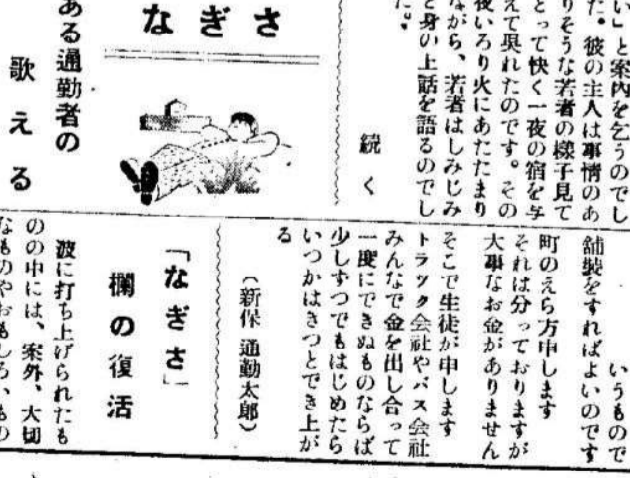 い」と案内を乞うのでし
た。彼の主人は事情のあ
りそうな若者の様子見て
とって快く一夜の宿を与
えて呉れたのです。その
夜いろり火にあたたまり
ながら、若者はしみじみ
と身の上話を語るのでし
た。
続く
なぎさ
ある通勤者の
歌える
いうもので
舗装をすればよいのです
町のえら方申します
それは分っておりますが
大事なお金がありません
そこで生徒が申します
トラック会社やバス会社
みんなで金を出し合って
一度にできぬものならば
少しずつでもはじめたら
いつかはきつとでき上が
る
(新保 通勤太郎)
「なぎさ」
欄の復活
波に打ち上げられたも
のの中には、案外、大切
なものやおもしろいもの